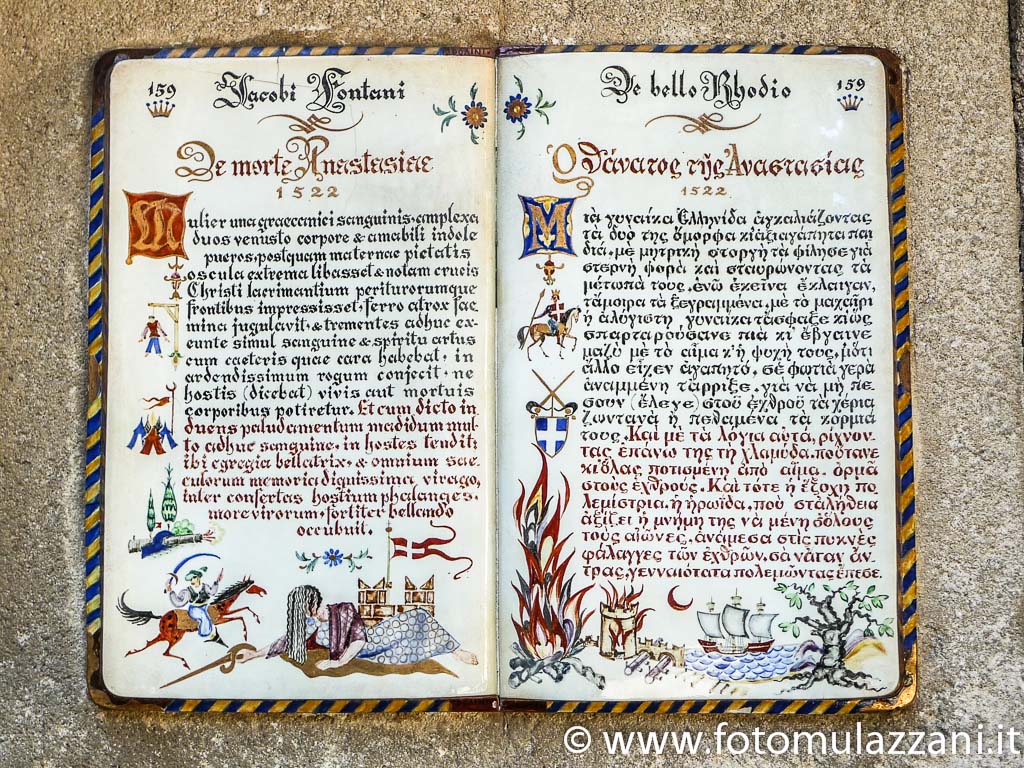 159
Jacobi Fontani
De morte Anastasiae
1522
Mulier una graecanici sanguinis, amplexa
duos venusto corpore & amabili indole
pueros, postquam maternae pietatis
oscula extrema libasset & notam crucis
Christi lacrimantium periturorumque
frontibus impressisset, ferro atrox fae
mina jugulavit, & trementes adhuc ex-
eunte simul sanguine & spiritu artus
cum caeteris quae cara habebat, in
ardendissimum rogum conjecit, ne
hostis (dicebat) vivis aut mortuis
corporibus potiretur. Et cum dicto in
duens paludamentum madidum mul
to adhuc sanguine, in hostes tendit;
ibi egregia bellatrix, & omnium sae
culorum memoria dignissima virago,
inter confertas hostium phalanges,
more virorum, fortiter bellando
occubuit.
De bello Rhodio
159
Ὁ θάνατος τῆς Ἀναστασίας
1522.
Μιὰ γυναίκα Ἑλληνίδα ἀγκαλιάζοντας
τὰ δυὸ της ὄμορφα κι ἀξιαγάπητα παι
διά, μὲ μητρικὴ στοργὴ τὰ φίλησε γιὰ
στερνὴ φορὰ καὶ σταυρώνοντας τὰ
μέτωπά τους, ἐνῶ ἐκεῖνα ἔκλαιγαν,
τἄμοιρα τὰ ξεγραμμένα, μὲ τὸ μαχαίρι
ἡ ἀλόγιστη γυναίκα τἄσφαξε κι ὅπως
σπαρταρούσανε πιὰ κι ἔβγαινε
μαζὺ μὲ τὸ αἷμα κ' ἡ ψυχή τους, μ' ὅτι
ἄλλο εἶχεν ἀγαπητὸ, σὲ φωτιὰ γερὰ
ἀναμμένη τἄρριξε, γιὰ νὰ μὴ πέ
σουν (ἔλεγε) στοῦ ἐχθροῦ τὰ χέρια
ζωντανὰ ἢ πεθαμένα τὰ κορμιά
τους. Καὶ μὲ τὰ λόγια αὐτὰ, ρίχνον-
τας ἐπάνω της τὴ χλαμύδα, ποὔτανε
κιόλας ποτισμένη ἀπὸ αἷμα, ὁρμᾶ
στοὺς ἐχθρούς. Καὶ τότε ἡ ἔξοχη πο
λεμίστρια, ἡ ἡρωΐδα, ποὺ στ' ἀλήθεια
ἀξίζει ἡ μνήμη της νὰ μένῃ σ' ὅλους
τοὺς αἰῶνες, ἀνάμεσα στὶς πυκνὲς
φάλαγγες τῶν ἐχθρῶν, σὰ νἆταν ἄν
τρας, γενναιότατα πολεμῶντας ἔπεσε.
© www.fotomulazzani.it